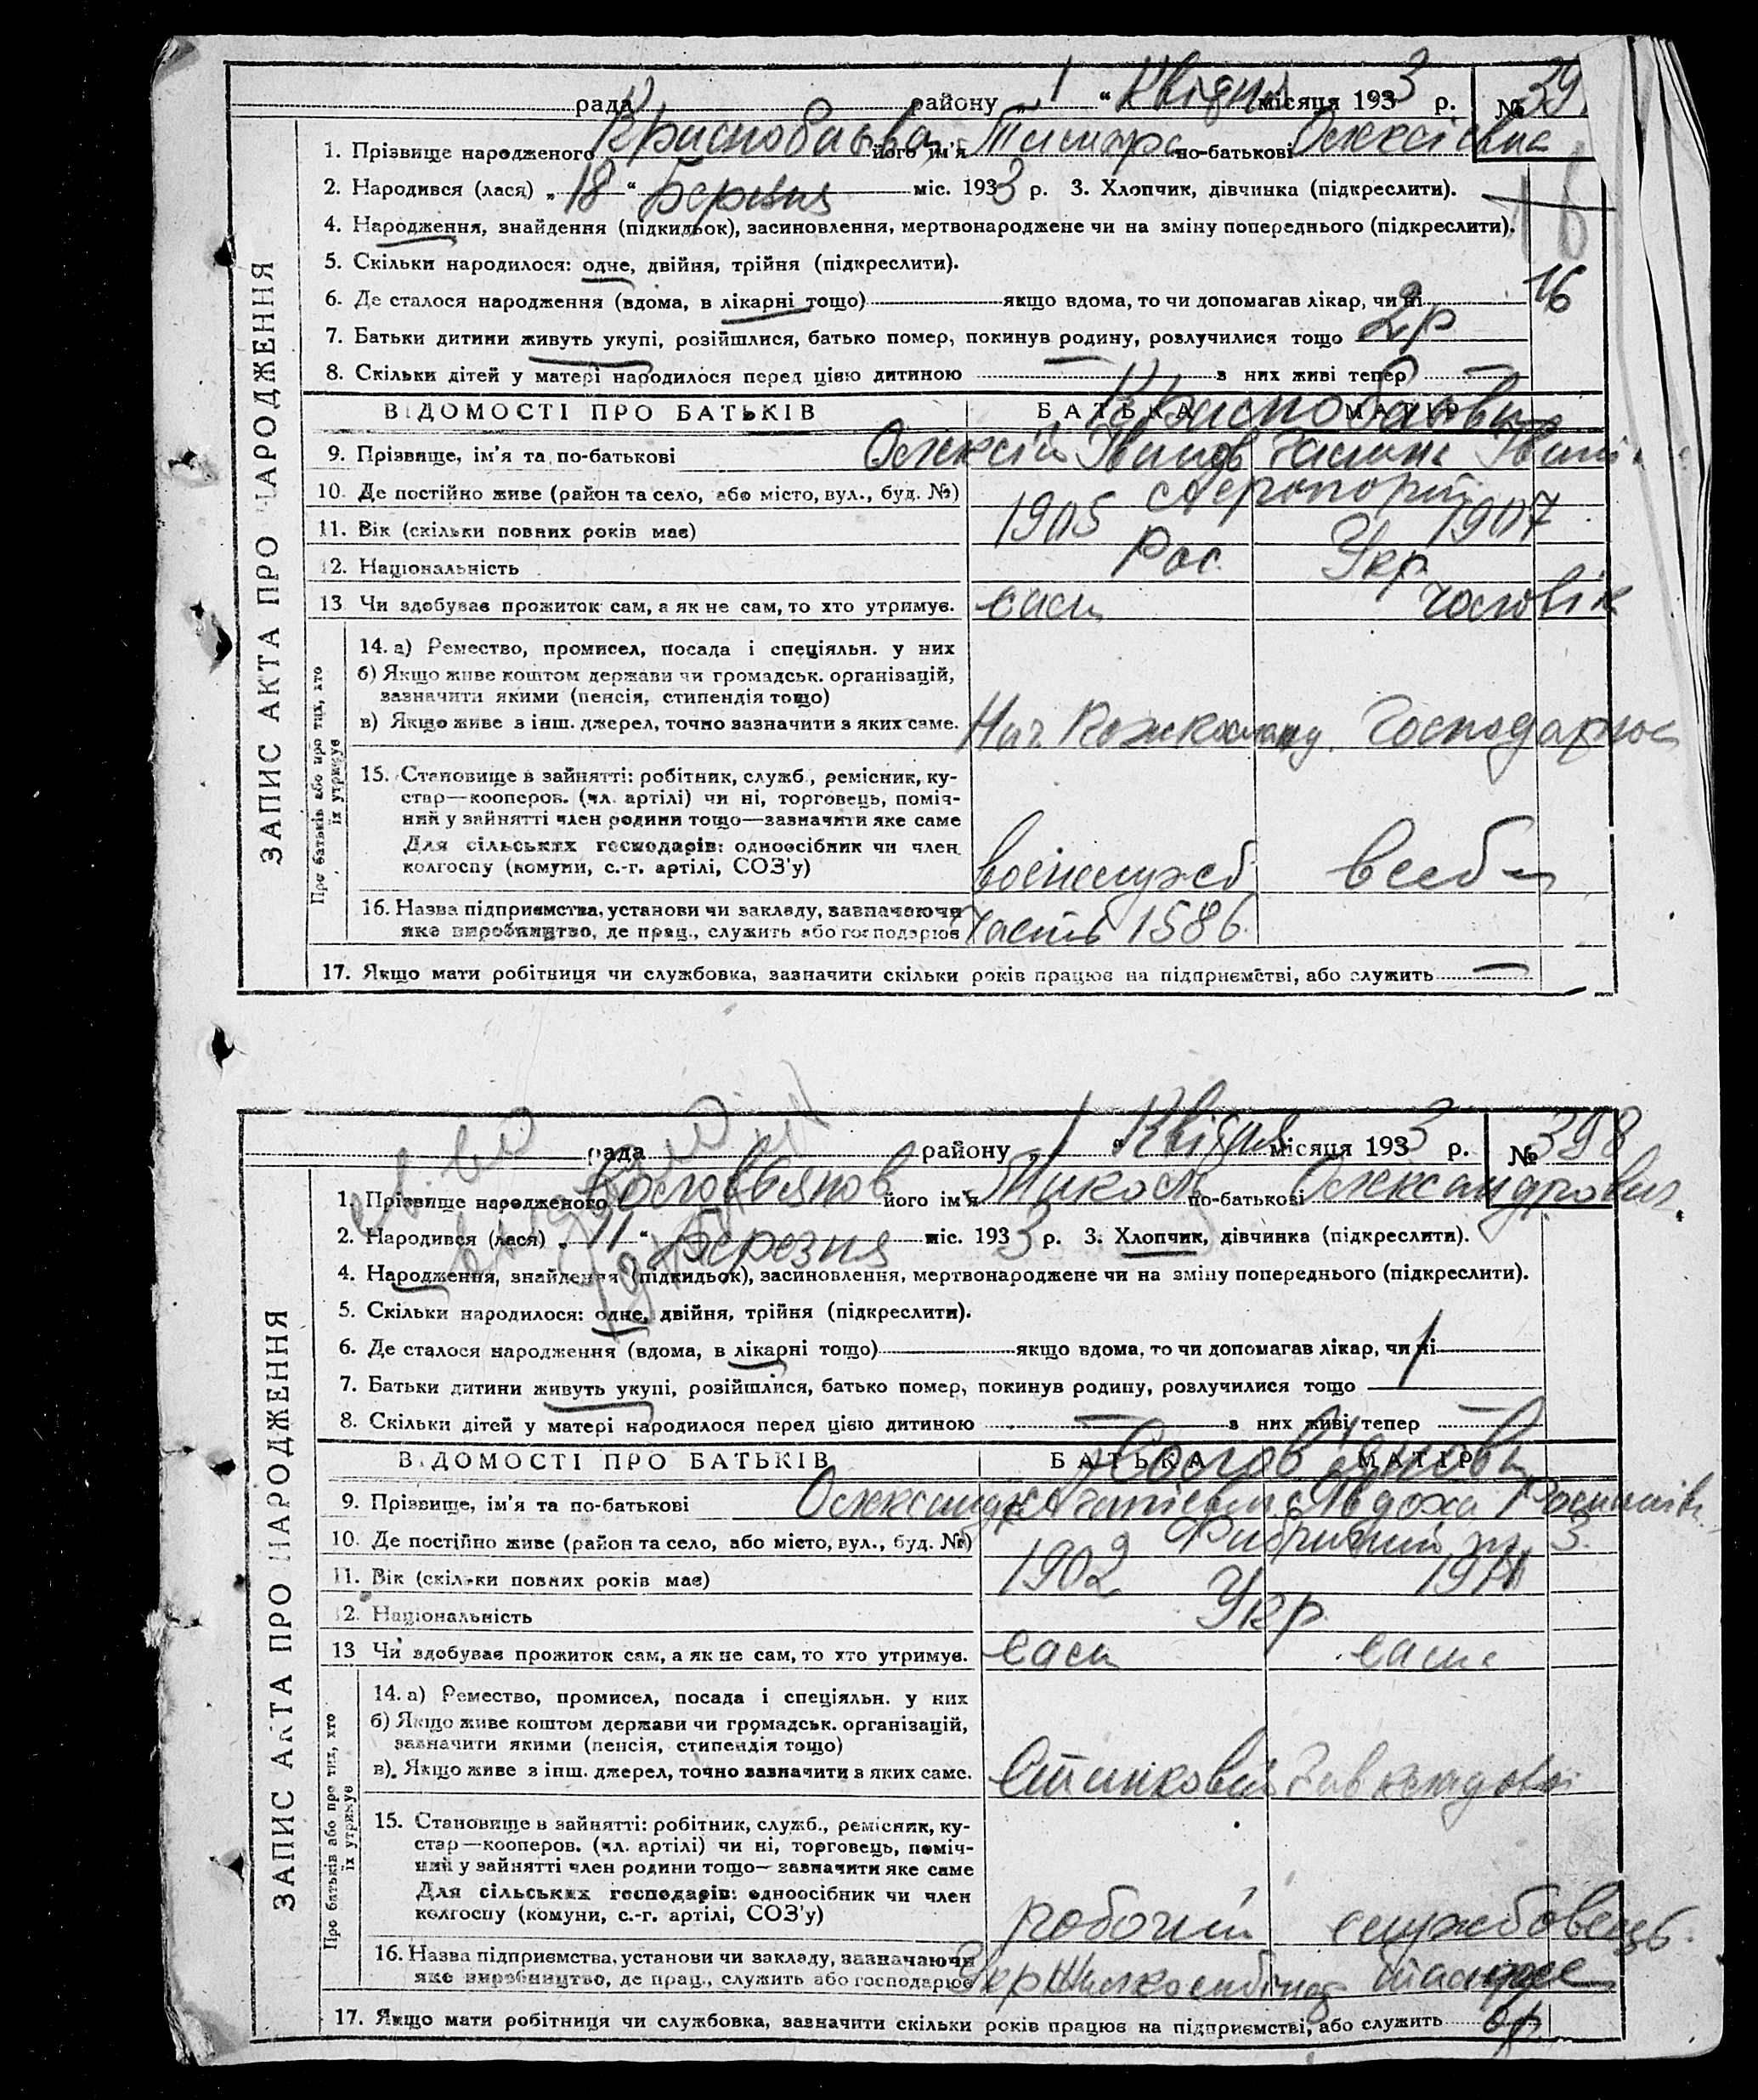 ЗАПИС АКТА ПРО НАРОДЖЕННЯ
рада району „ 1 “ Квітня місяця 1933 р. № 39
1. Прізвище народженого Краснобаєва його ім'я Тамара по-батькові Олексіївна
2. Народився (лася) „ 18 “ Березня міс. 1933 р. 3. Хлопчик, дівчинка (підкреслити).
4. Народження, знайдення (підкидьок), засиновлення, мертвонароджене чи на зміну попереднього (підкреслити).
5. Скільки народилося: одне, двійня, трійня (підкреслити).
6. Де сталося народження (вдома, в лікарні тощо) якщо вдома, то чи допомагав лікар, чи ні 16
7. Батьки дитини живуть укупі, розійшлися, батько помер, покинув родину, розлучилися тощо 2р
8. Скільки дітей у матері народилося перед цією дитиною — з них живі тепер —
ВІДОМОСТІ ПРО БАТЬКІВ БАТЬКА МАТІР
Краснобаєви
9. Прізвище, ім'я та по-батькові Олексій Іванов Галина Іванів
10. Де постійно живе (район та село, або місто, вул., буд. №) Аеропорт
11. Вік (скільки повних років має) 1905 1907
12. Національність Рос. Укр
13. Чи здобуває прожиток сам, а як не сам, то хто утримує. сам чоловік
Про батьків або про тих, хто їх утримує
14. а) Ремество, промисел, посада і спеціяльн. у них
б) Якщо живе коштом держави чи громадськ. організацій,
зазначити якими (пенсія, стипендія тощо)
в) Якщо живе з інш. джерел, точно зазначити з яких саме. Нач. Пожкоманд. Господарює
15. Становище в зайнятті: робітник, служб., ремісник, ку-
стар—кооперов. (чл. артілі) чи ні, торговець, поміч-
ний у зайнятті член родини тощо—зазначити яке саме
Для сільських господарів: одноосібник чи член
колгоспу (комуни, с.-г. артілі, СОЗ'у) воєнслужб
16. Назва підприємства, установи чи закладу, зазначаючи
яке виробництво, де прац., служить або господарює Часть 1586
17. Якщо мати робітниця чи службовка, зазначити скільки років працює на підприємстві, або служить —
ЗАПИС АКТА ПРО НАРОДЖЕННЯ
рада району „ 1 “ Квітня місяця 1933 р. № 398
1. Прізвище народженого Солов'янов його ім'я Микола по-батькові Олександрович.
2. Народився (лася) „ 11 “ Березня міс. 1933 р. 3. Хлопчик, дівчинка (підкреслити).
4. Народження, знайдення (підкидьок), засиновлення, мертвонароджене чи на зміну попереднього (підкреслити).
5. Скільки народилося: одне, двійня, трійня (підкреслити).
6. Де сталося народження (вдома, в лікарні тощо) якщо вдома, то чи допомагав лікар, чи ні
7. Батьки дитини живуть укупі, розійшлися, батько помер, покинув родину, розлучилися тощо 1
8. Скільки дітей у матері народилося перед цією дитиною — з них живі тепер —
ВІДОМОСТІ ПРО БАТЬКІВ БАТЬКА МАТІР
Солов'янови
9. Прізвище, ім'я та по-батькові Олександр Агапієвич Явдоха
10. Де постійно живе (район та село, або місто, вул., буд. №) Фабричний 3.
11. Вік (скільки повних років має) 1902
12. Національність Укр
13 Чи здобуває прожиток сам, а як не сам, то хто утримує. сам сама
Про батьків або про тих, хто їх утримує
14. а) Ремество, промисел, посада і спеціяльн. у них
б) Якщо живе коштом держави чи громадськ. організацій,
зазначити якими (пенсія, стипендія тощо)
в). Якщо живе з інш. джерел, точно зазначити в яких саме. Станковий Зав кладової
15. Становище в зайнятті: робітник, служб., ремісник, ку-
стар—кооперов. (чл. артілі) чи ні, торговець, поміч-
ний у зайнятті член родини тощо—зазначити яке саме
Для сільських господарів: одноосібник чи член
колгоспу (комуни, с.-г. артілі, СОЗ'у) робочий службовець.
16. Назва підприємства, установи чи закладу, зазначаючи
яке виробництво, де прац., служить або господарює
17. Якщо мати робітниця чи службовка, зазначити скільки років працює на підприємстві, або служить